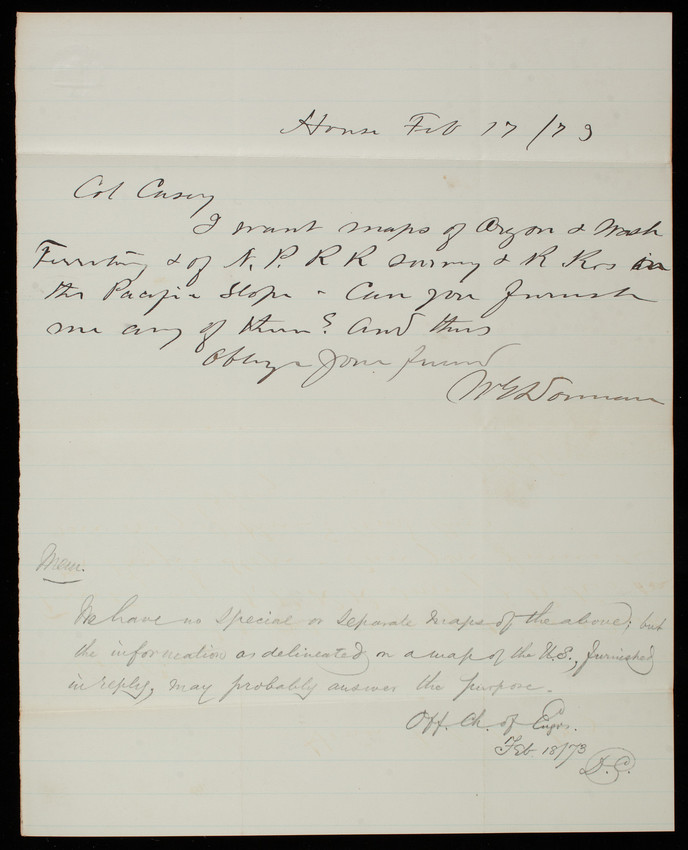 House Feb 17/73
Col Casey
I want maps of Oregon & Wash
Territory & of N. P. R R survey & R Rds in
the Pacific Slope - Can you furnish
me any of them? And thus
Oblige your friend
Mem.
We have no special or separate maps of the above; but
the information as delineated on a map of the U.S., furnished
in reply, may probably answer the purpose.
Off. Ch. of Engrs.
Feb 18/73
D.C.